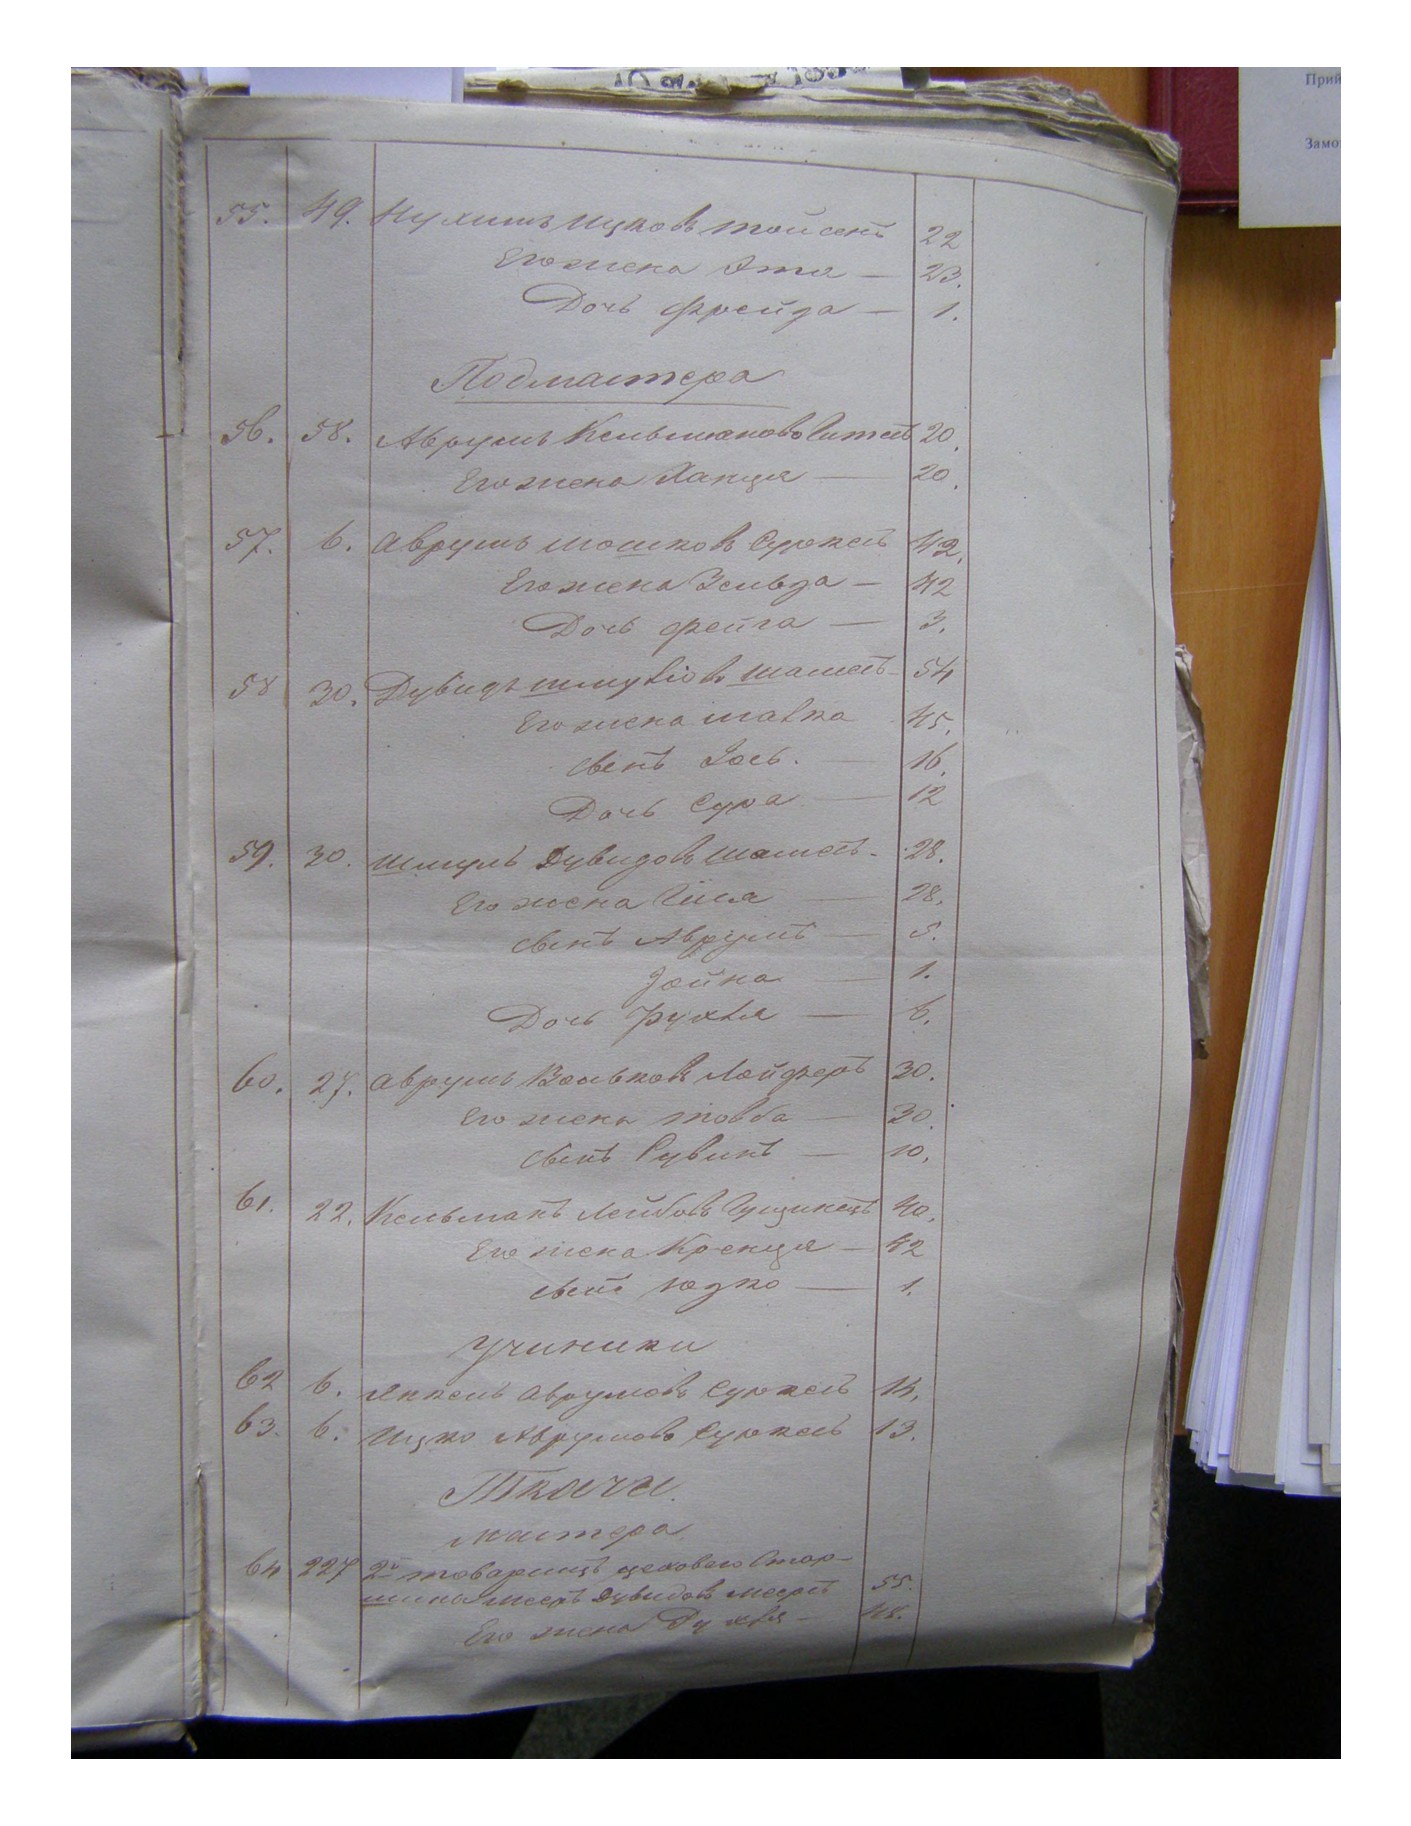 Прий
Замо
55. 49. Нухимъ Ицковъ 22
Его жена Эта — 23.
Дочь Фрейда — 1.
Подмастера
56. 58. Аврумъ Кельмановъ 20.
Его жена Ханця — 20.
57. 6. Аврумъ Мошковъ Суркесъ 42.
Его жена Зельда — 42
Дочь Фейга — 3.
58 30. Дувидъ Шмулiовъ Шамесъ 54
Его жена Малка 45.
Сынъ Iось. — 16.
Дочь Сура — 12
59. 30. Шмуль Дувидовъ Шамесъ. 28.
Его жена — 28.
Сынъ Аврумъ — 5.
Зойна — 1.
Дочь Рухля — 6.
60. 27. Аврумъ Вольковъ Лойферъ 30.
Его жена Товба — 30.
Сынъ Рувинъ — 10.
61. 22. Кельманъ Лейбовъ 40.
Его жена Кренця — 42
Сынъ Юдко — 1.
Ученики
62 6. Янкель Аврумовъ Суркесъ 14.
63. 6. Ицко Аврумовъ Суркесъ 13.
Ткачи.
Мастера
64 227 2й товарищъ цеховаго Стар-
шина Мееръ Дувидовъ Мееръ 55.
Его жена Рухля — 48.